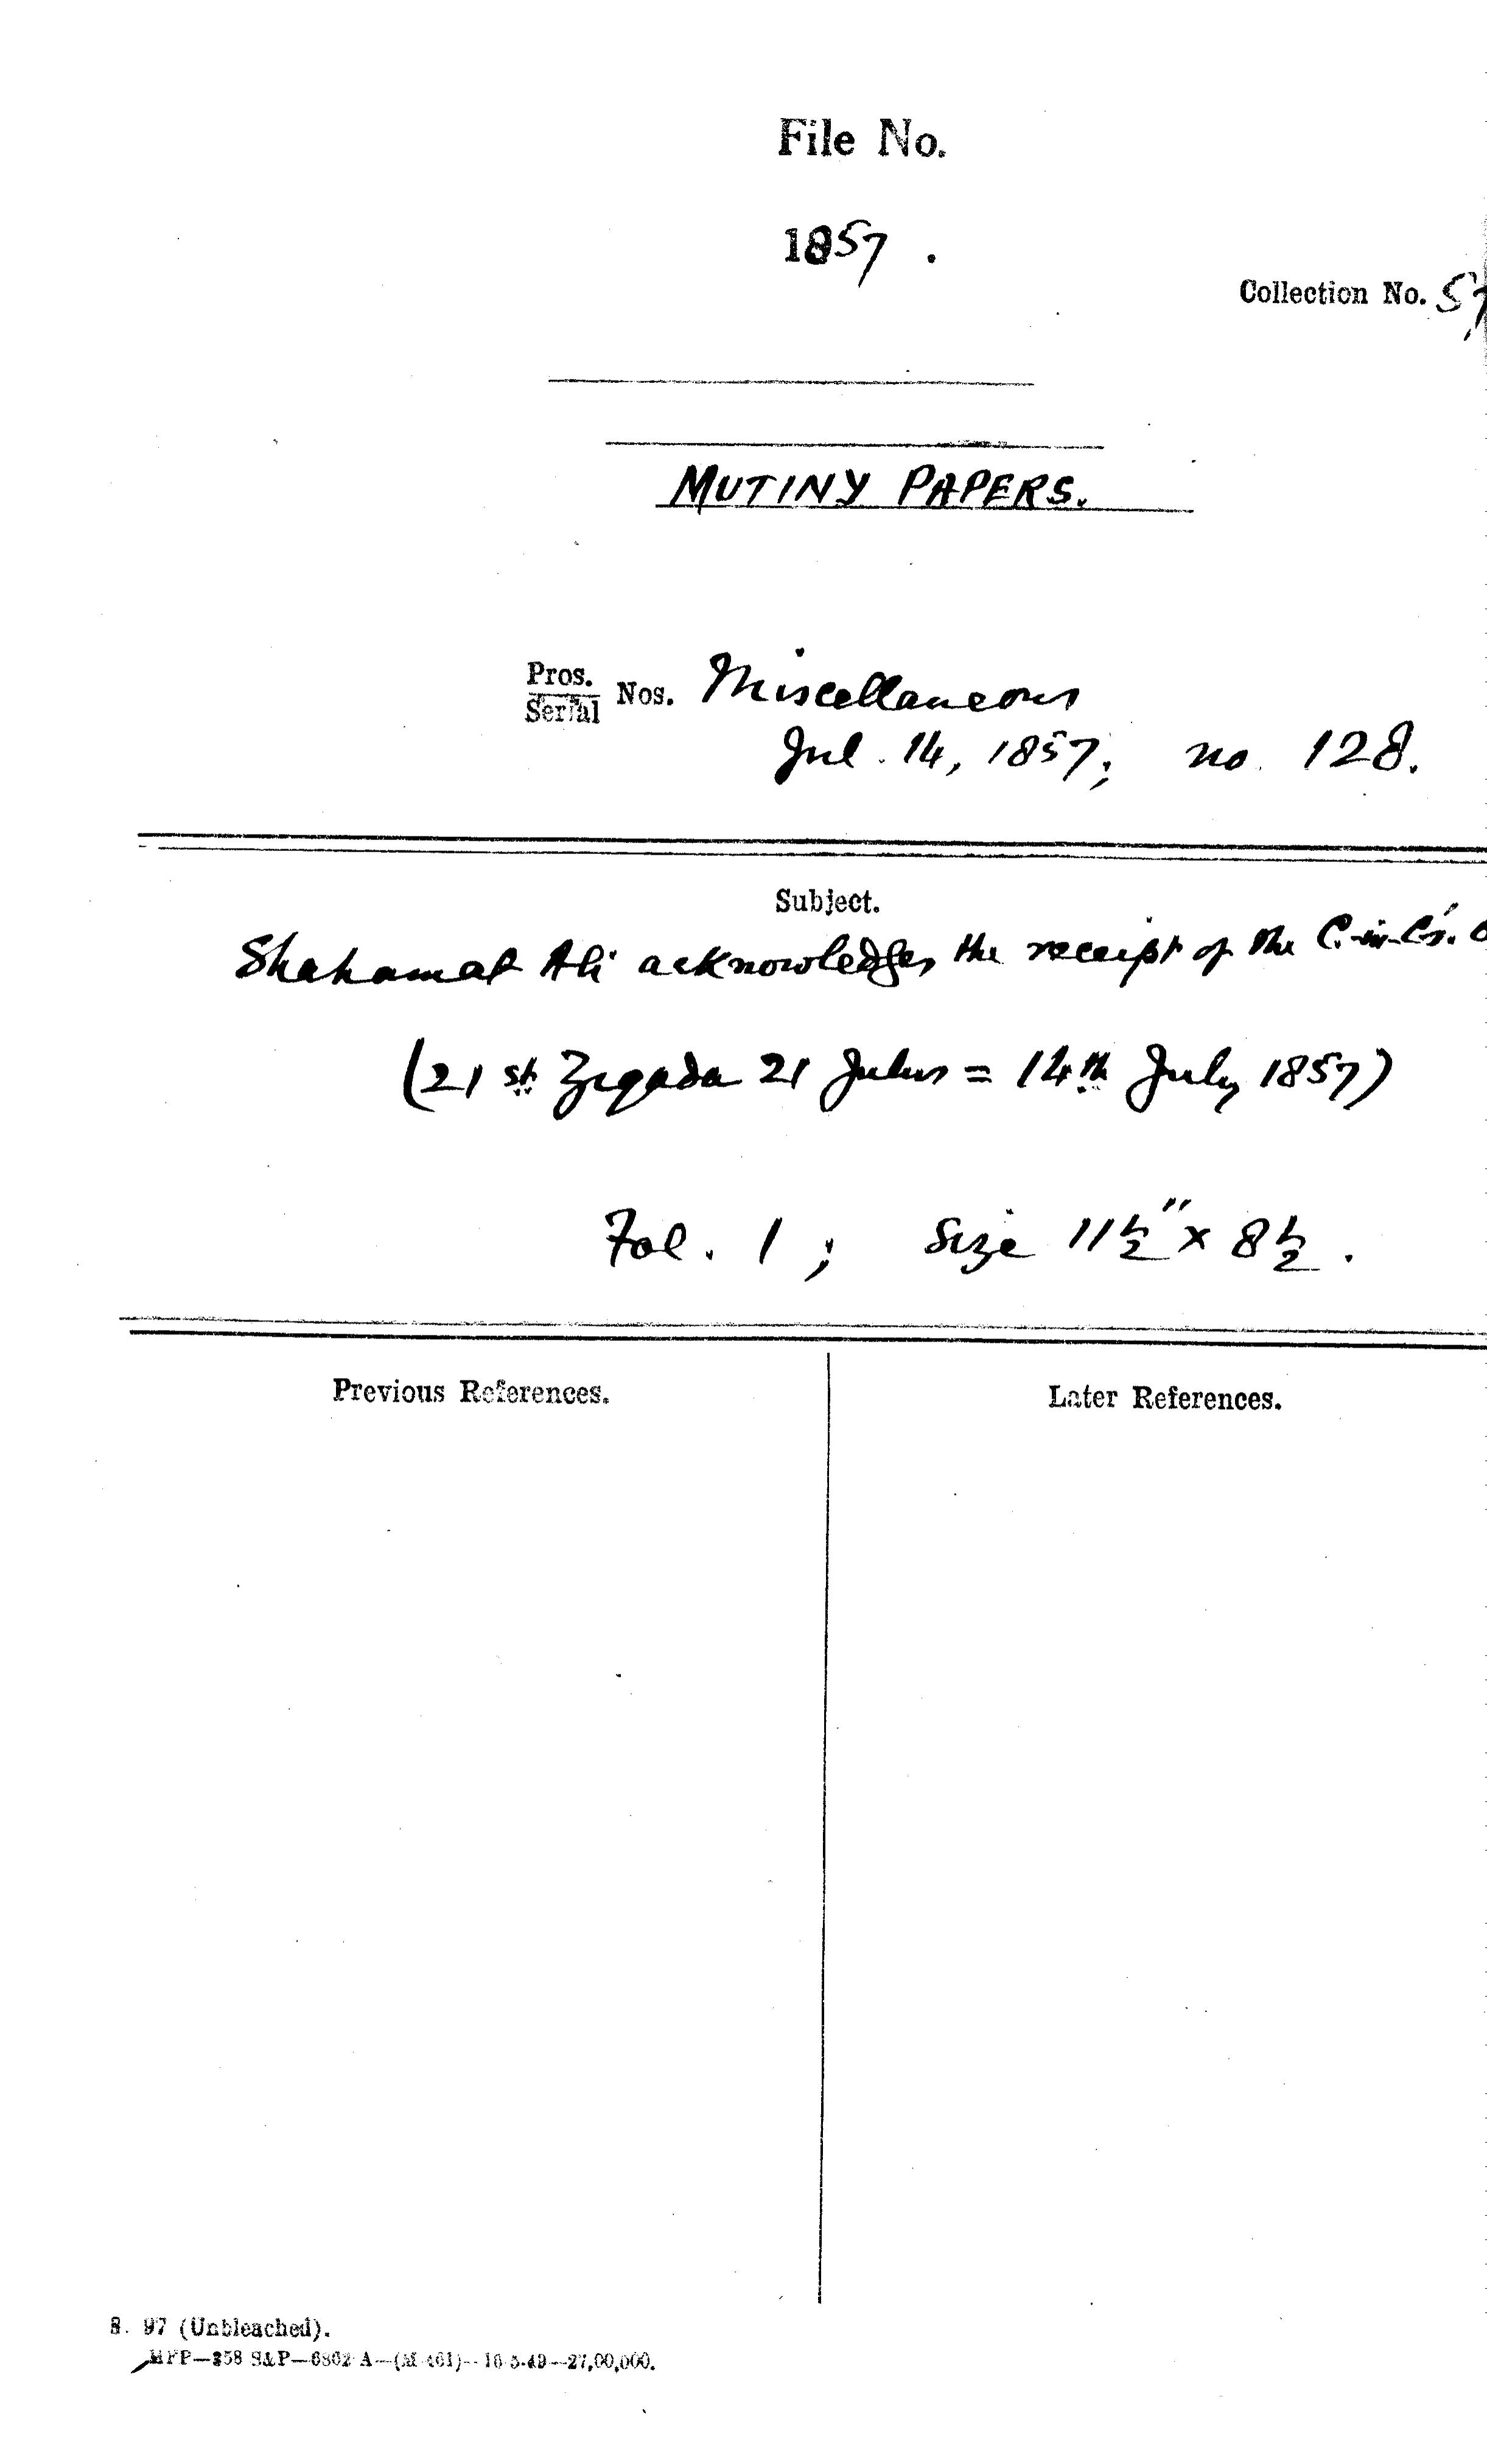 File No.
1857 .
Collection No. 57
MUTINY PAPERS.
Pros.
Serial Nos. Miscellaneous
Jul. 14, 1857; no. 128.
Subject.
Shahamat Ali acknowledges the receipt of the C.-in-C's.
(21st Zeqada 21 Julus = 14th July 1857)
Fol. 1 ; Size 11½" × 8½ .
Previous References.
Later References.
S. 97 (Unbleached).
MFP—358 S&P—6862 A—(M-461)—16-5-49—27,00,000.